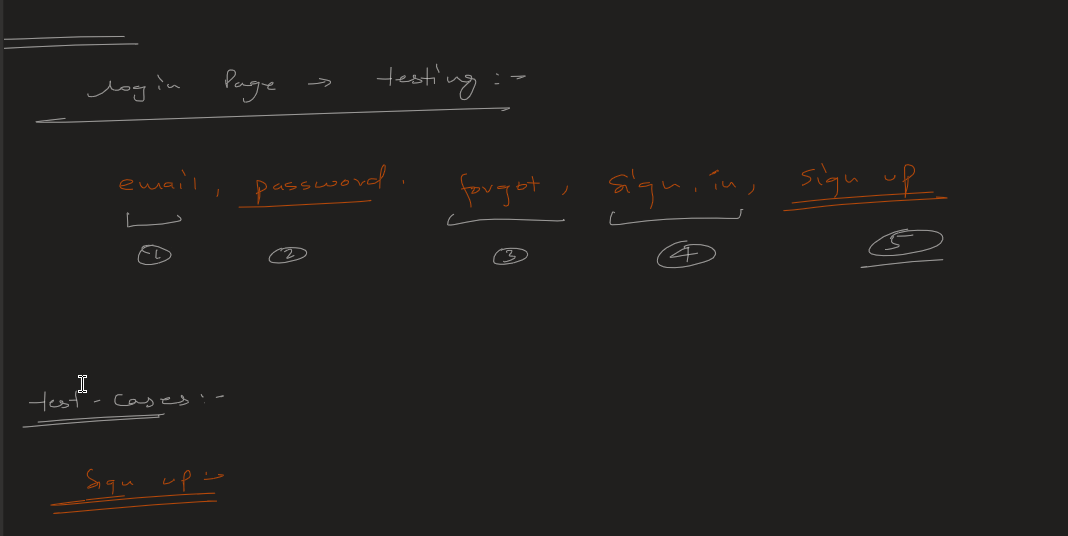 Login Page → testing :-
email, password. forgot, sign in, sign up
1 2 3 4 5
test-cases :-
Sign up :-